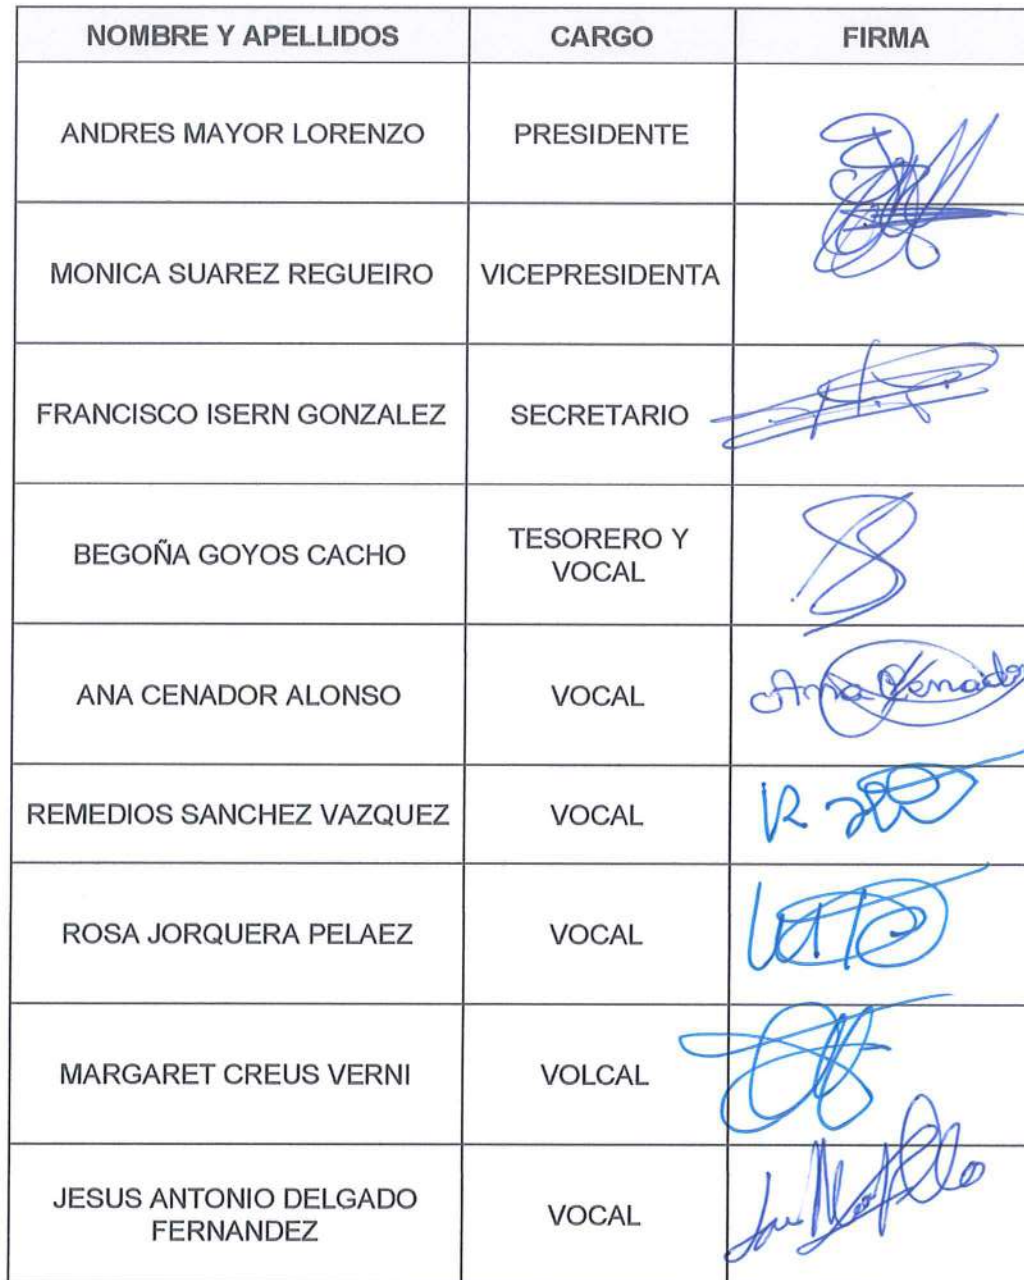 NOMBRE Y APELLIDOS CARGO FIRMA
ANDRES MAYOR LORENZO PRESIDENTE
MONICA SUAREZ REGUEIRO VICEPRESIDENTA
FRANCISCO ISERN GONZALEZ SECRETARIO
BEGOÑA GOYOS CACHO TESORERO Y
VOCAL
ANA CENADOR ALONSO VOCAL Ana Cenador
REMEDIOS SANCHEZ VAZQUEZ VOCAL
ROSA JORQUERA PELAEZ VOCAL
MARGARET CREUS VERNI VOLCAL
JESUS ANTONIO DELGADO
FERNANDEZ VOCAL